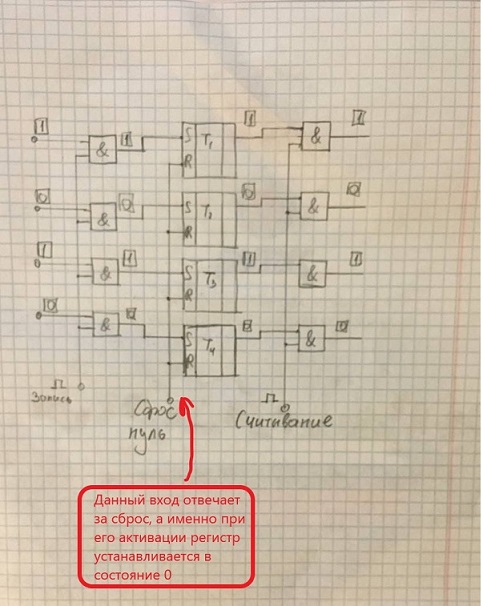 1 & 1 S T1 R 1 & 1
0 & 0 S T2 R 0 & 0
1 & 1 S T3 R 1 & 1
0 & 0 S T4 R 0 & 0
Запись
Сброс
нуль
Считывание
Данный вход отвечает
за сброс, а именно при
его активации регистр
устанавливается в
состояние 0